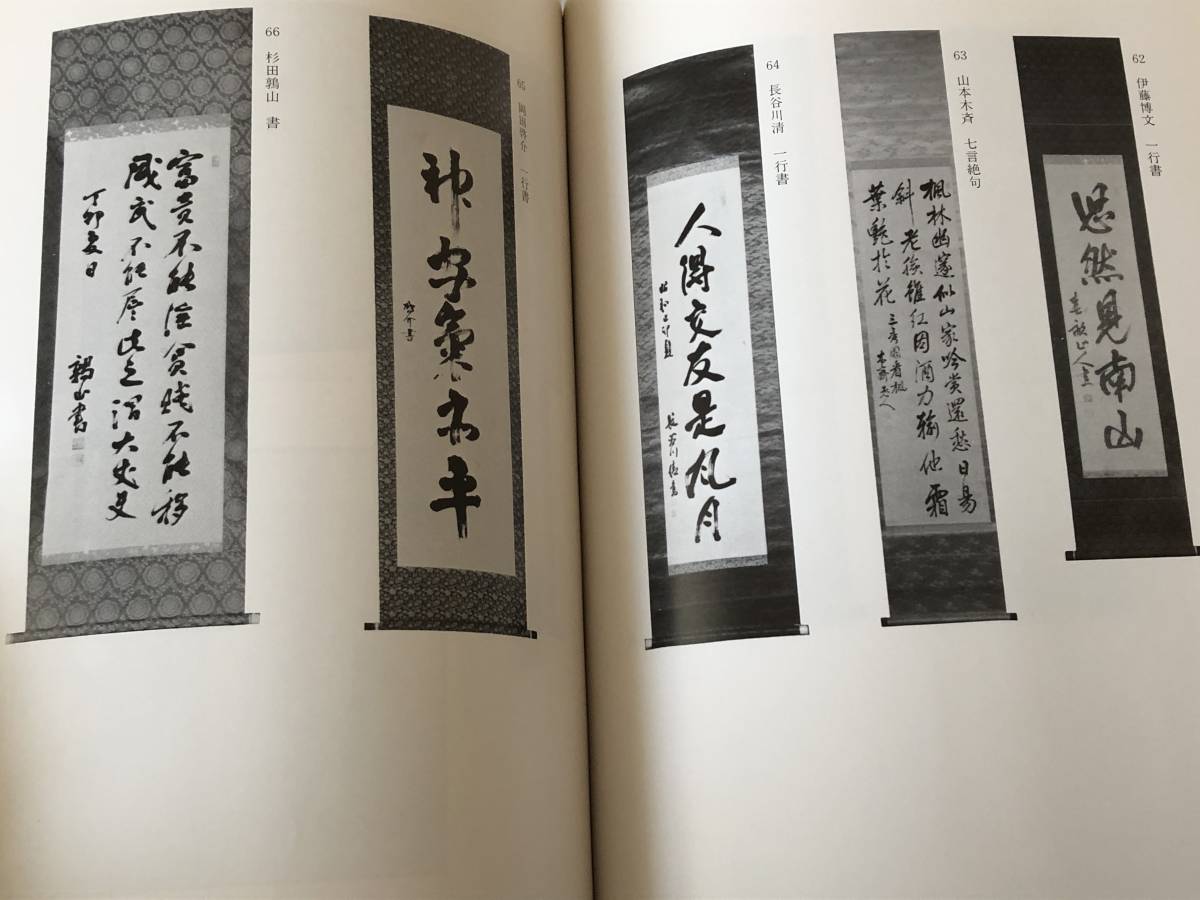 62 伊藤博文 一行書
悠然見南山
春畝山人
63 山本木斉 七言絶句
楓林幽邃似山家吟賞還愁日易
斜老後雖紅因酒力輸他霜
葉艶於花
64 長谷川清 一行書
人得交友是風月
長谷川清書
65 岡田啓介 一行書
神 氣亦平
啓介書
66 杉田鶉山 書
富貴不能淫貧賤不能移
威武不能屈此之謂大丈夫
丁卯夏日
鶉山書